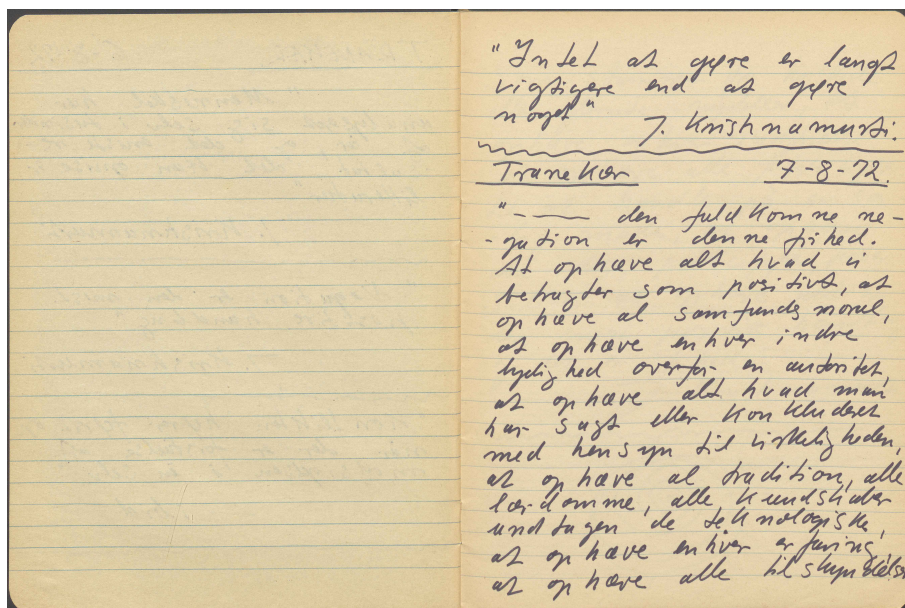 "Intet at gøre er langt
vigtigere end at gøre
noget"
J. Krishnamurti.
Tranekær 7-8-72.
"—— den fuldkomne ne-
-gation er denne frihed.
At ophæve alt hvad vi
betragter som positivt, at
ophæve al samfundsmoral,
at ophæve enhver indre
lydighed overfor en autoritet,
at ophæve alt hvad man
har sagt eller konkluderet
med hensyn til virkeligheden,
at ophæve al tradition, alle
lærdomme, alle kundskaber
undtagen de teknologiske,
at ophæve enhver erfaring,
at ophæve alle tilskyndelser